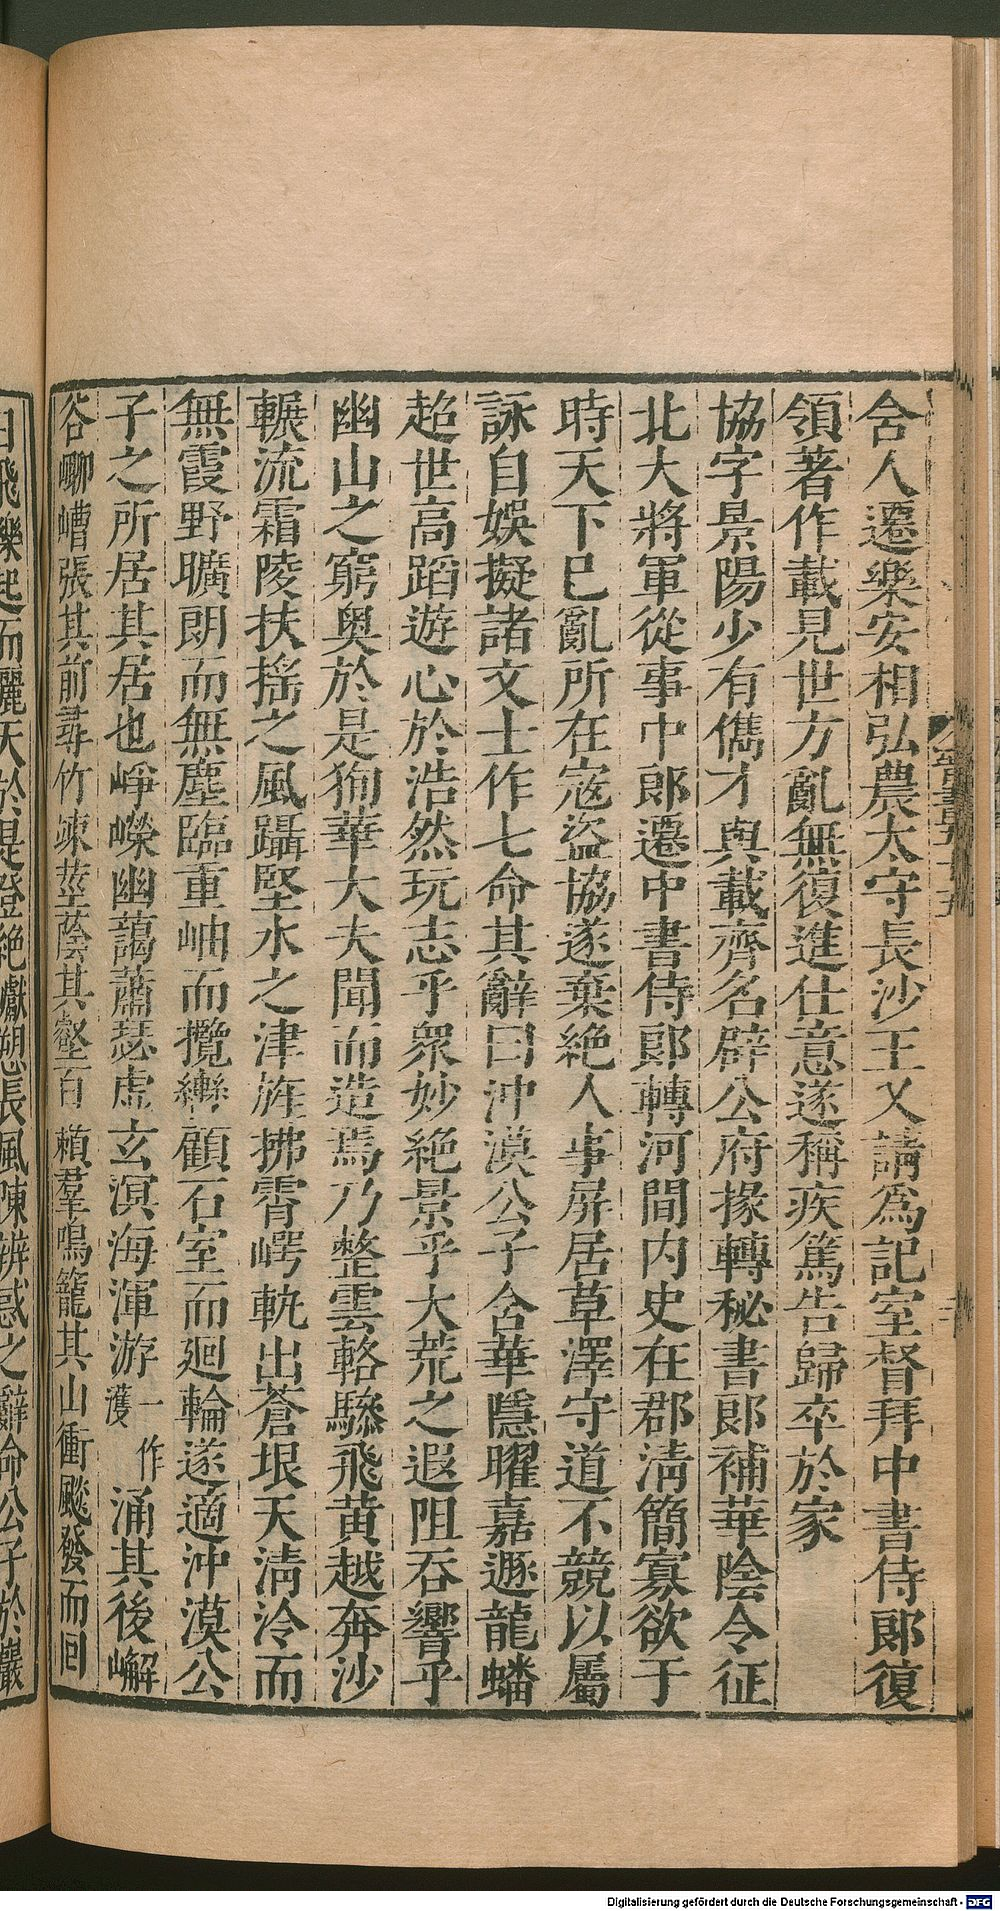 舍人遷樂安相弘農太守長沙王乂請爲記室督拜中書侍郎復
領著作載見世方亂無復進仕意遂稱疾篤告歸卒於家
協字景陽少有儁才與載齊名辟公府掾轉秘書郎補華陰令征
北大將軍從事中郎遷中書侍郎轉河間内史在郡淸簡寡欲于
時天下巳亂所在寇盜協遂棄絶人事屏居草澤守道不競以屬
詠自娛擬諸文士作七命其辭曰沖漠公子含華隱曜嘉遯龍蟠
超世高蹈遊心於浩然玩志乎衆妙絶景乎大荒之遐阻吞響乎
幽山之窮奥於是狥華大夫聞而造焉乃整雲輅驂飛黄越奔沙
輾流霜陵扶搖之風躡堅氷之津旌拂霄崿軌出蒼垠天淸泠而
無霞野曠朗而無塵臨重岫而攬轡顧石室而廻輪遂適沖漠公
子之所居其居也崢嶸幽藹蕭瑟虚玄溟海渾游一作濩涌其後嶰
谷嘐嶆張其前尋竹竦莖蔭其壑百籟羣鳴籠其山衝飈發而回
日飛礫起而麗天於是登絶巘遡長風陳辨惑之辭命公子於巖
Digitalisierung gefördert durch die Deutsche Forschungsgemeinschaft - DFG